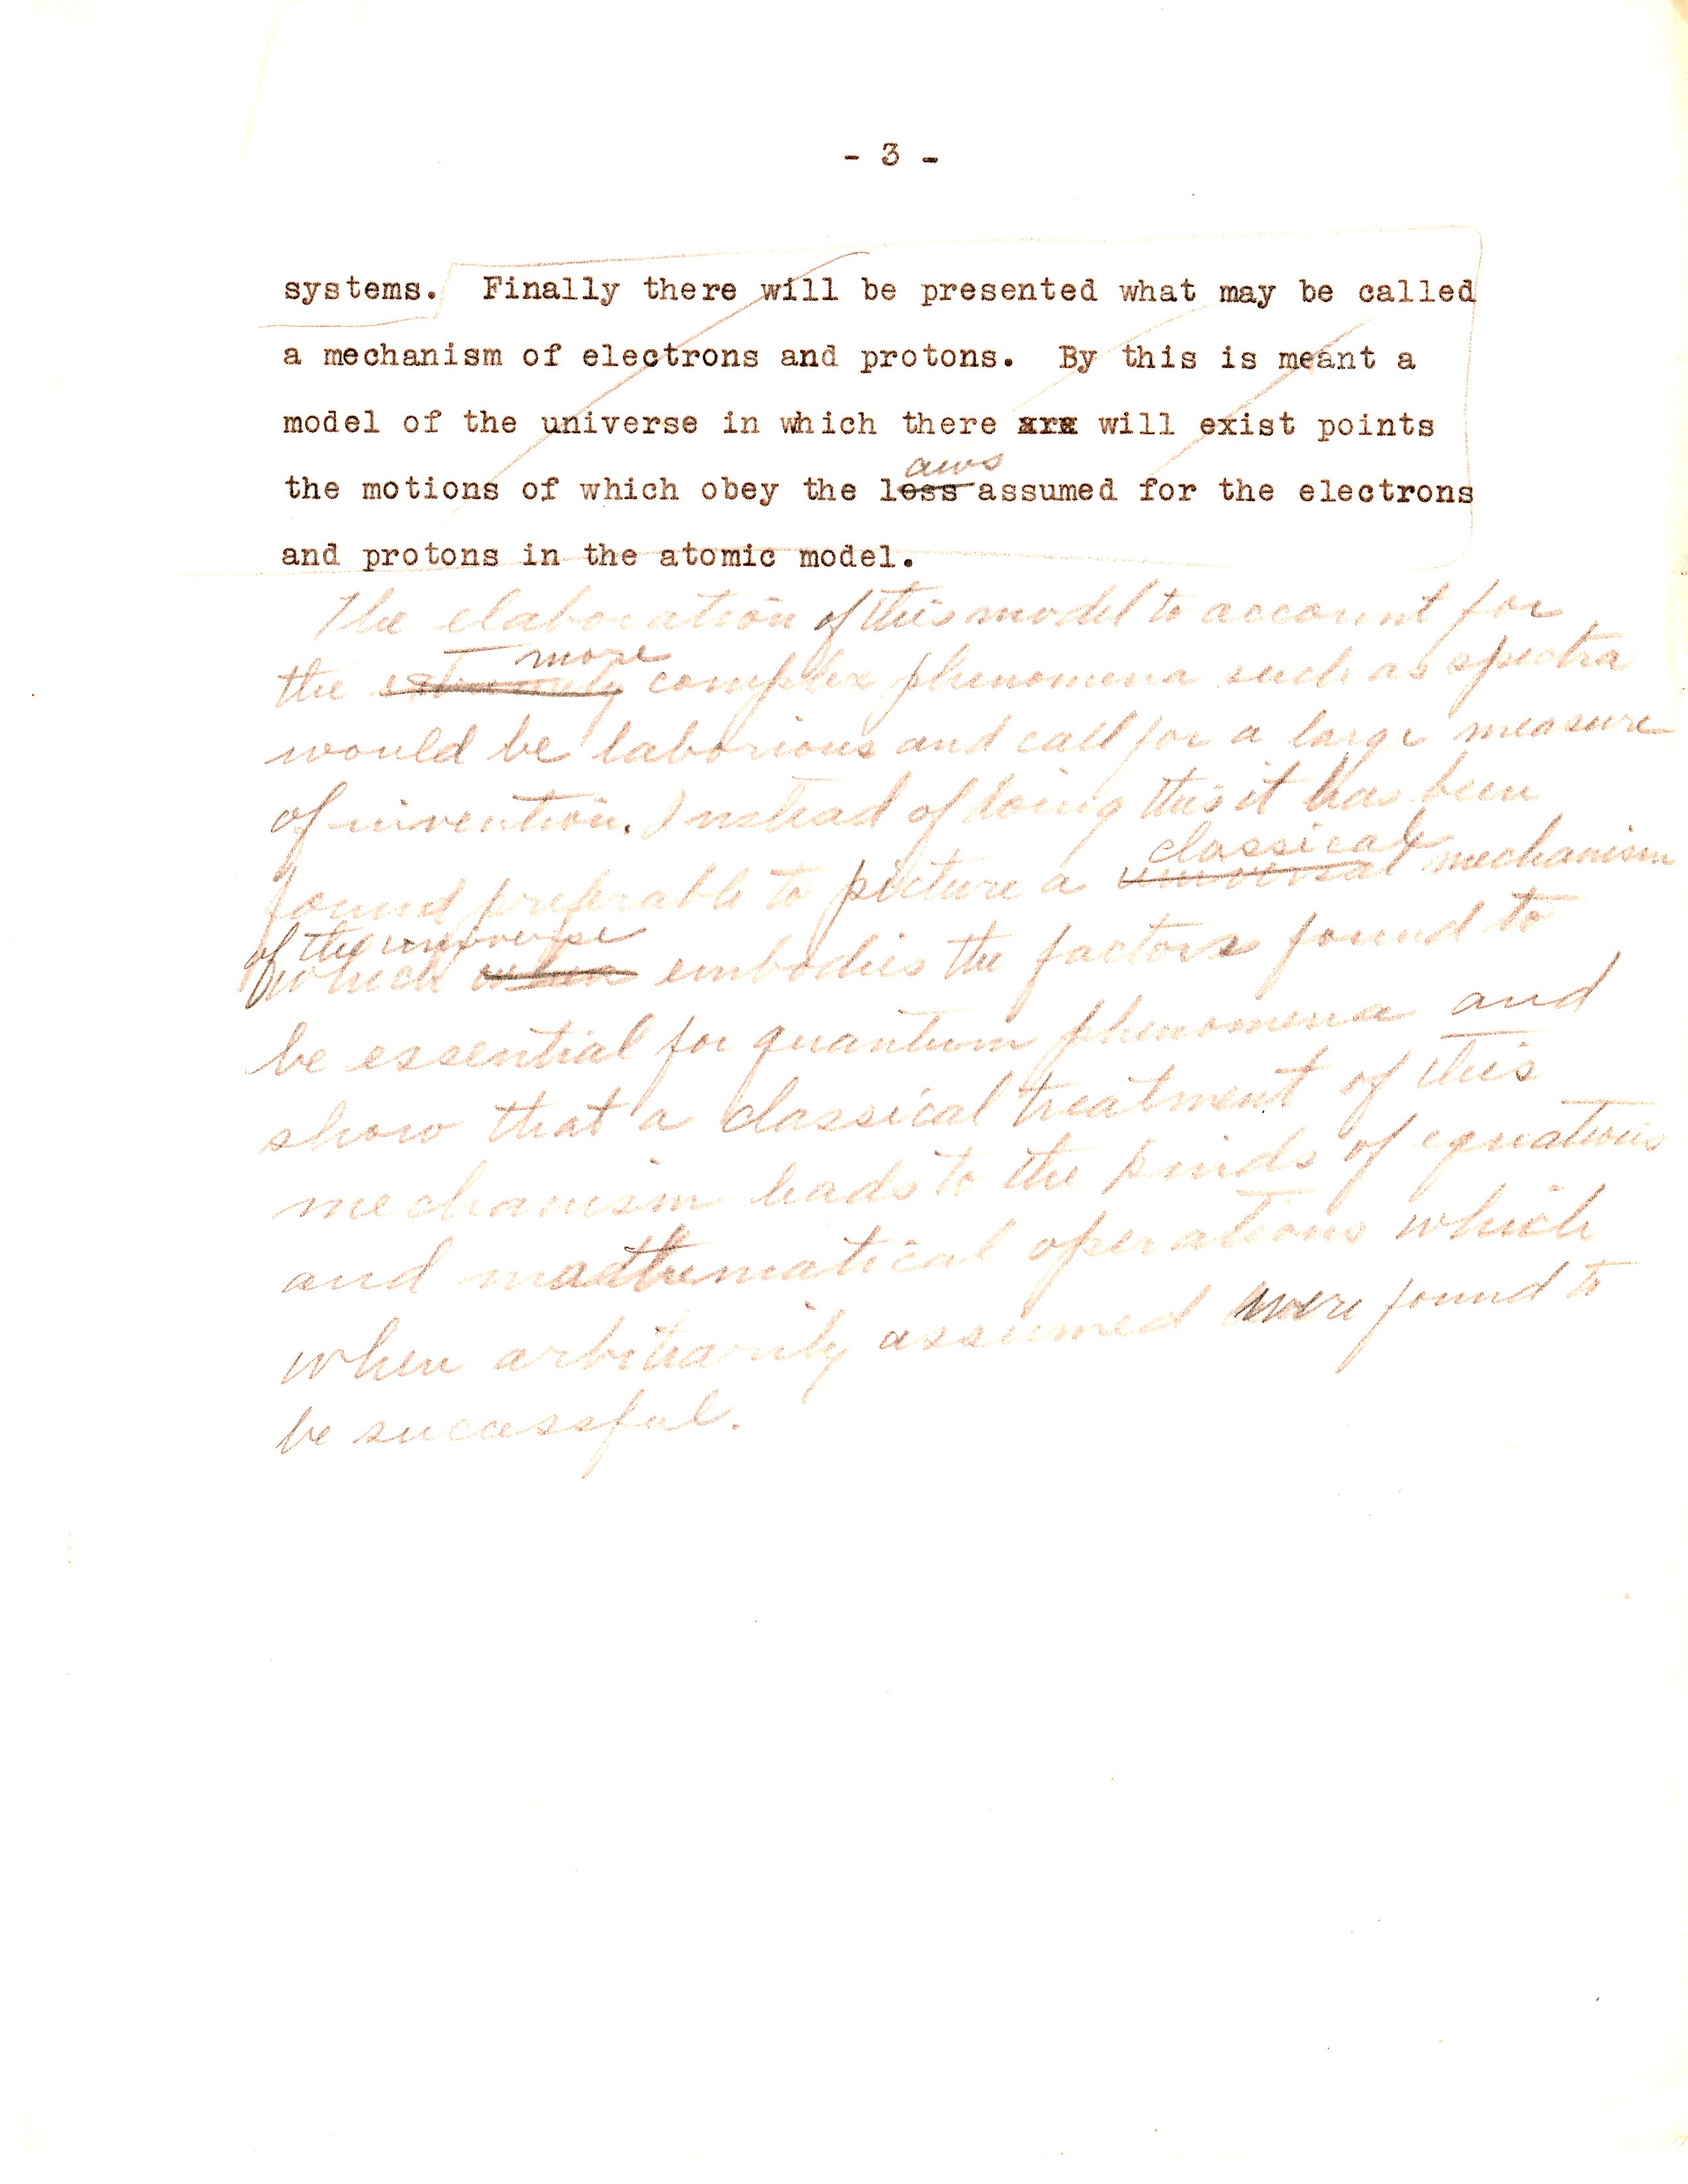 - 3 -
systems. Finally there will be presented what may be called
a mechanism of electrons and protons. By this is meant a
model of the universe in which there are will exist points
aws
the motions of which obey the loss assumed for the electrons
and protons in the atomic model.
The elaboration of this model to account for
more
the extremely complex phenomena such as spectra
would be laborious and call for a large measure
of invention. Instead of doing this it has been
classical
found preferable to picture a universal mechanism
of the universe
which when embodies the factors found to
be essential for quantum phenomena and
show that a classical treatment of this
mechanism leads to the kinds of equations
and mathematical operations which
when arbitrarily assumed were found to
be successful.